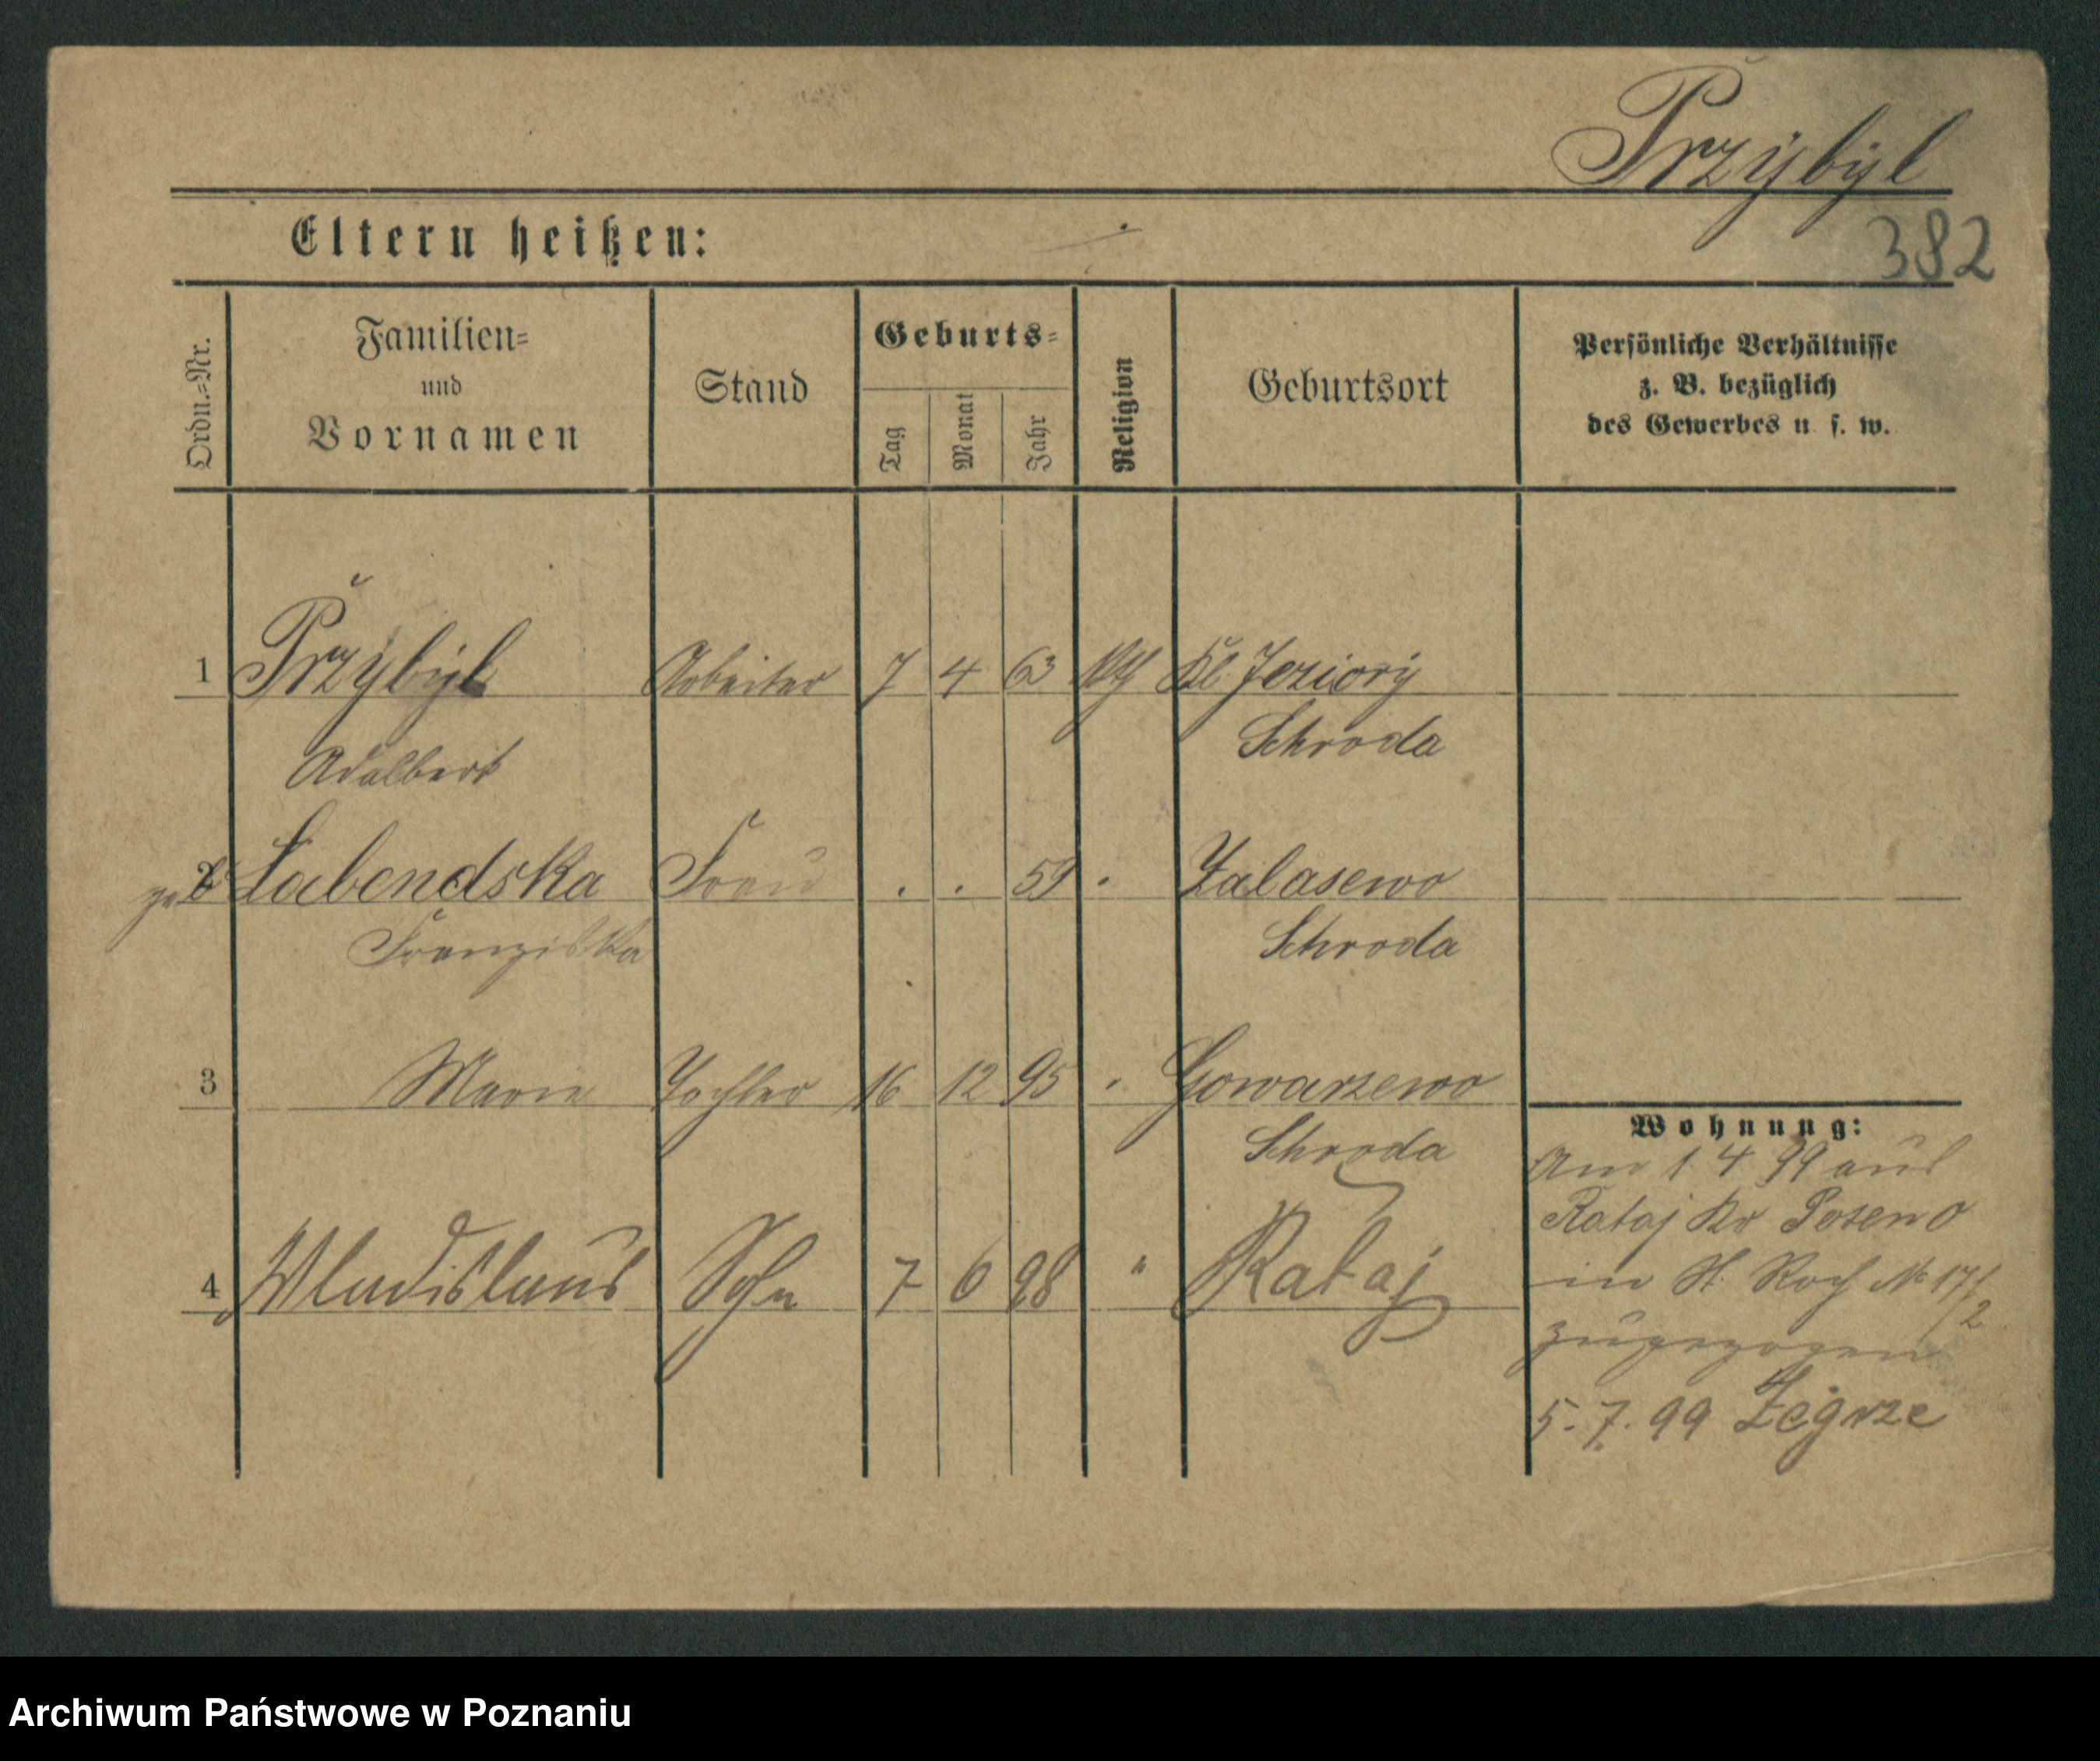 Przybyl
382
Eltern heißen:
Ordn.=Nr. Familien= und Vornamen Stand Geburts= Tag Monat Jahr Religion Geburtsort Persönliche Verhältnisse z. B. bezüglich des Gewerbes u. s. w.
1 Przybyl Arbeiter 7 4 63 kth Kl Jeziory
Adalbert Schroda
2 geb Labendska Frau . . 59 . Zalasewo
Franziska Schroda
3 Marie Tochter 16 12 95 " Gowarzewo
Schroda
4 Wladislaus Sohn 7 6 98 " Rataj
Wohnung:
Am 1 4 99 aus
Rataj Kr Posen O
in St. Roch No 17/2
zugezogen
5. 7. 99 Zegrze
Archiwum Państwowe w Poznaniu